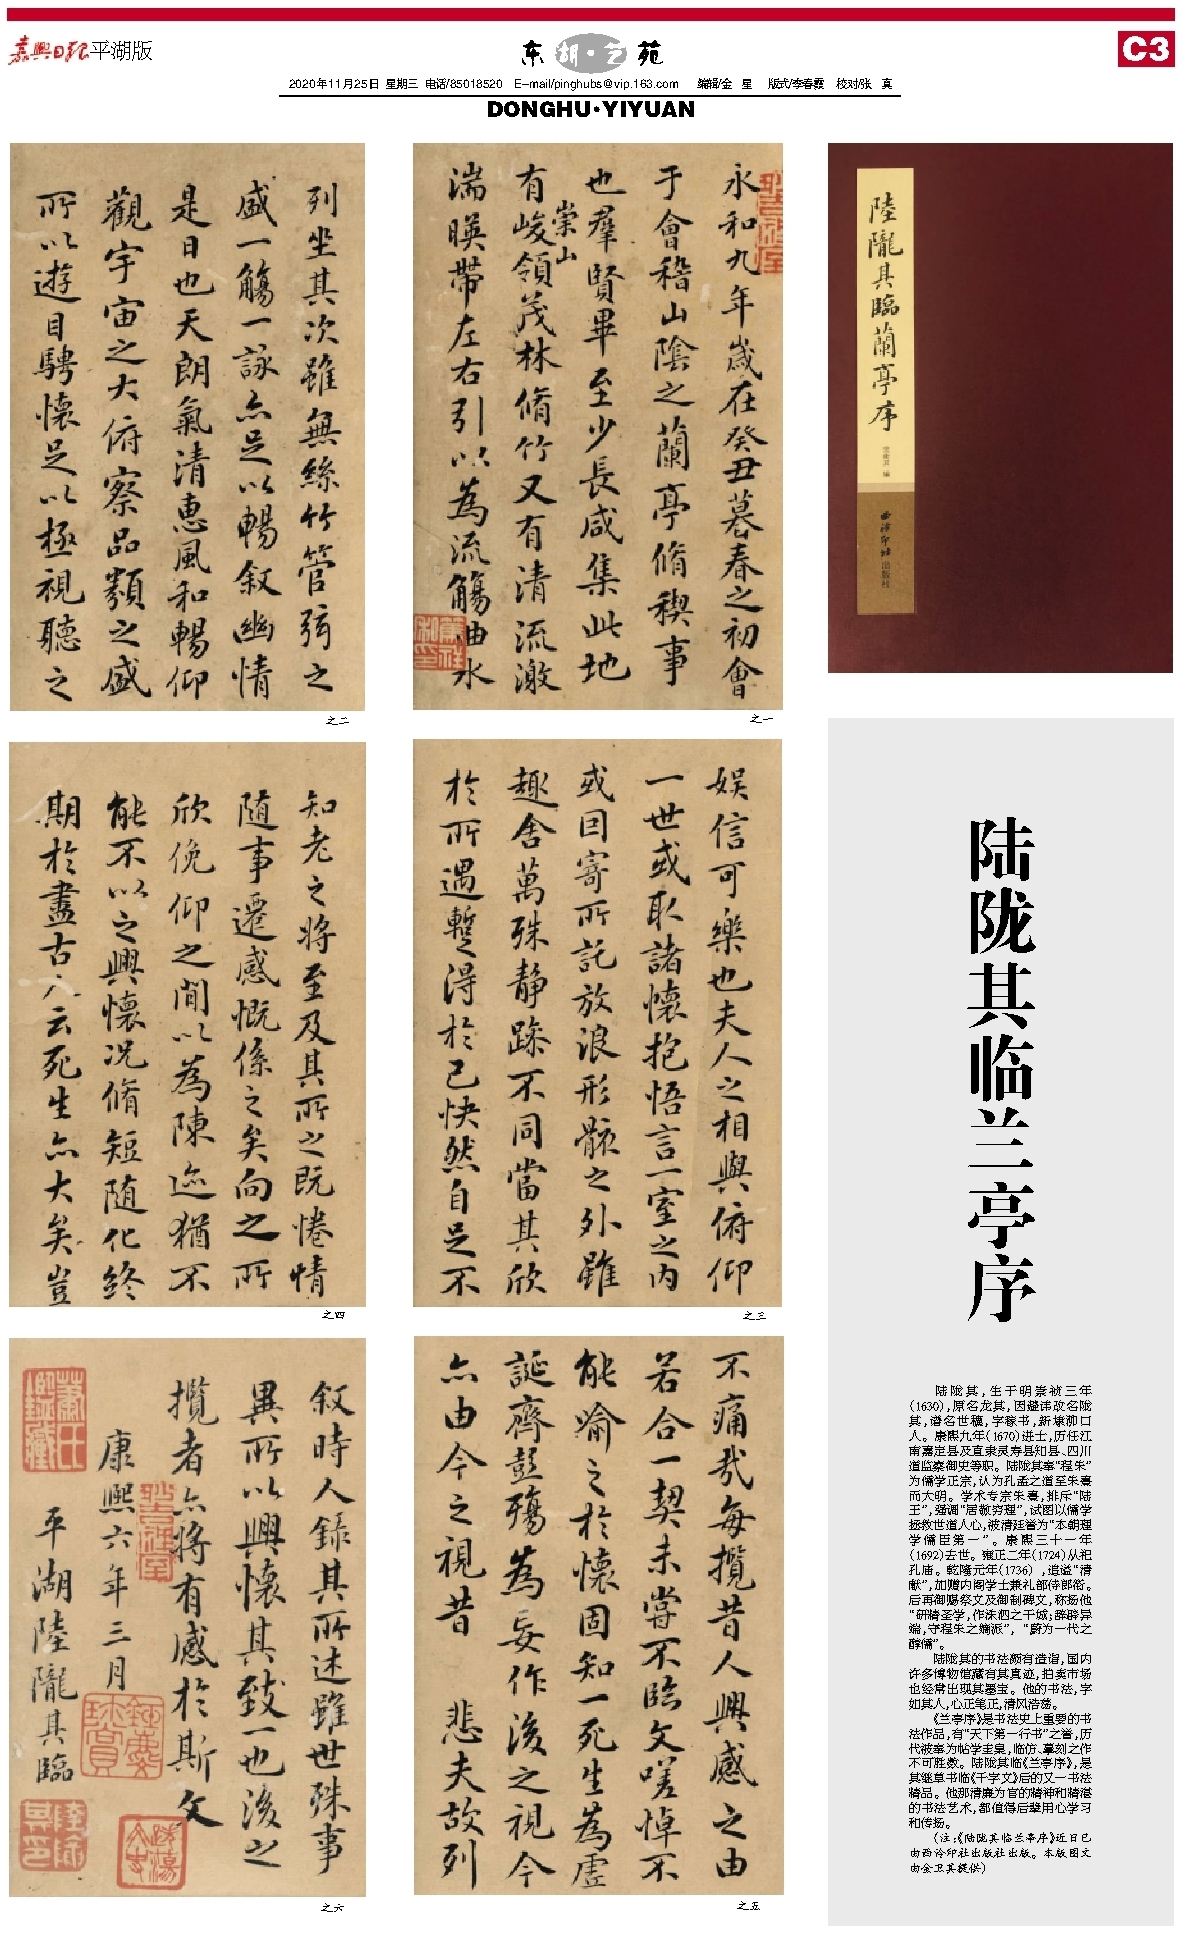 嘉興日報平湖版
东湖·艺苑
C3
2020年11月25日 星期三 电话/85018520 E-mail/pinghubs@vip.163.com 编辑/金 星 版式/李春霞 校对/张 真
DONGHU·YIYUAN
陸隴其臨蘭亭序
西泠印社出版社
永和九年歲在癸丑暮春之初會
于會稽山陰之蘭亭脩稧事
也羣賢畢至少長咸集此地
有崇山峻領茂林脩竹又有清流激
湍暎帶左右引以為流觴曲水
之一
列坐其次雖無絲竹管弦之
盛一觴一詠亦足以暢叙幽情
是日也天朗氣清惠風和暢仰
觀宇宙之大俯察品類之盛
所以遊目騁懷足以極視聽之
之二
娱信可樂也夫人之相與俯仰
一世或取諸懷抱悟言一室之内
或因寄所託放浪形骸之外雖
趣舍萬殊静躁不同當其欣
於所遇蹔得於己快然自足不
之三
知老之將至及其所之既惓情
随事遷感慨係之矣向之所
欣俛仰之間以為陳迹猶不
能不以之興懷况脩短随化終
期於盡古人云死生亦大矣豈
之四
不痛哉每攬昔人興感之由
若合一契未嘗不臨文嗟悼不
能喻之於懷固知一死生為虛
誕齊彭殤為妄作後之視今
亦由今之視昔 悲夫故列
之五
叙時人録其所述雖世殊事
異所以興懷其致一也後之
攬者亦將有感於斯文
康熙六年三月
平湖陸隴其臨
之六
陆陇其临兰亭序
陆陇其，生于明崇祯三年
（1630），原名龙其，因避讳改名陇
其，谱名世穮，字稼书，新埭泖口
人。康熙九年（1670）进士，历任江
南嘉定县及直隶灵寿县知县、四川
道监察御史等职。陆陇其奉“程朱”
为儒学正宗，认为孔孟之道至朱熹
而大明。学术专宗朱熹，排斥“陆
王”，强调“居敬穷理”，试图以儒学
拯救世道人心，被清廷誉为“本朝理
学儒臣第一”。康熙三十一年
（1692）去世。雍正二年（1724）从祀
孔庙。乾隆元年（1736），追谥“清
献”，加赠内阁学士兼礼部侍郎衔。
后再御赐祭文及御制碑文，称扬他
“研精圣学，作洙泗之干城；辞辟异
端，守程朱之嫡派”，“蔚为一代之
醇儒”。
陆陇其的书法颇有造诣，国内
许多博物馆藏有其真迹，拍卖市场
也经常出现其墨宝。他的书法，字
如其人，心正笔正，清风浩荡。
《兰亭序》是书法史上重要的书
法作品，有“天下第一行书”之誉，历
代被奉为帖学圭臬，临仿、摹刻之作
不可胜数。陆陇其临《兰亭序》，是
其继草书临《千字文》后的又一书法
精品。他那清廉为官的精神和精湛
的书法艺术，都值得后辈用心学习
和传扬。
（注：《陆陇其临兰亭序》近日已
由西泠印社出版社出版。本版图文
由金卫其提供）